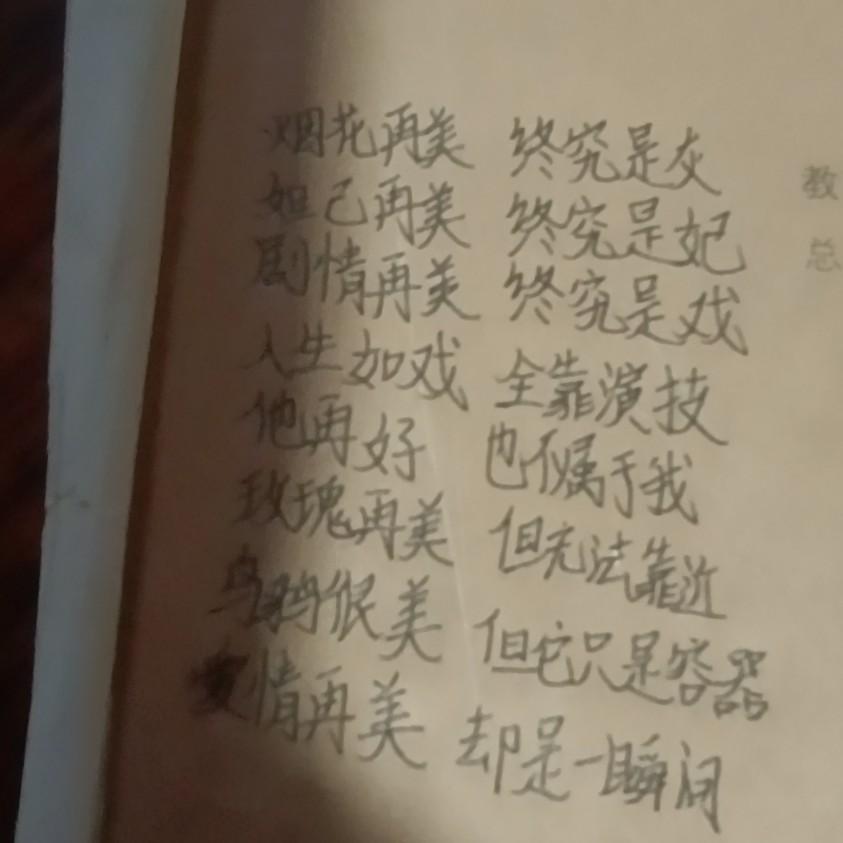 烟花再美 终究是灰
妲己再美 终究是妃
剧情再美 终究是戏
人生如戏 全靠演技
他再好 也不属于我
玫瑰再美 但无法靠近
乌鸦很美 但它只是容器
爱情再美 却是一瞬间
教
总